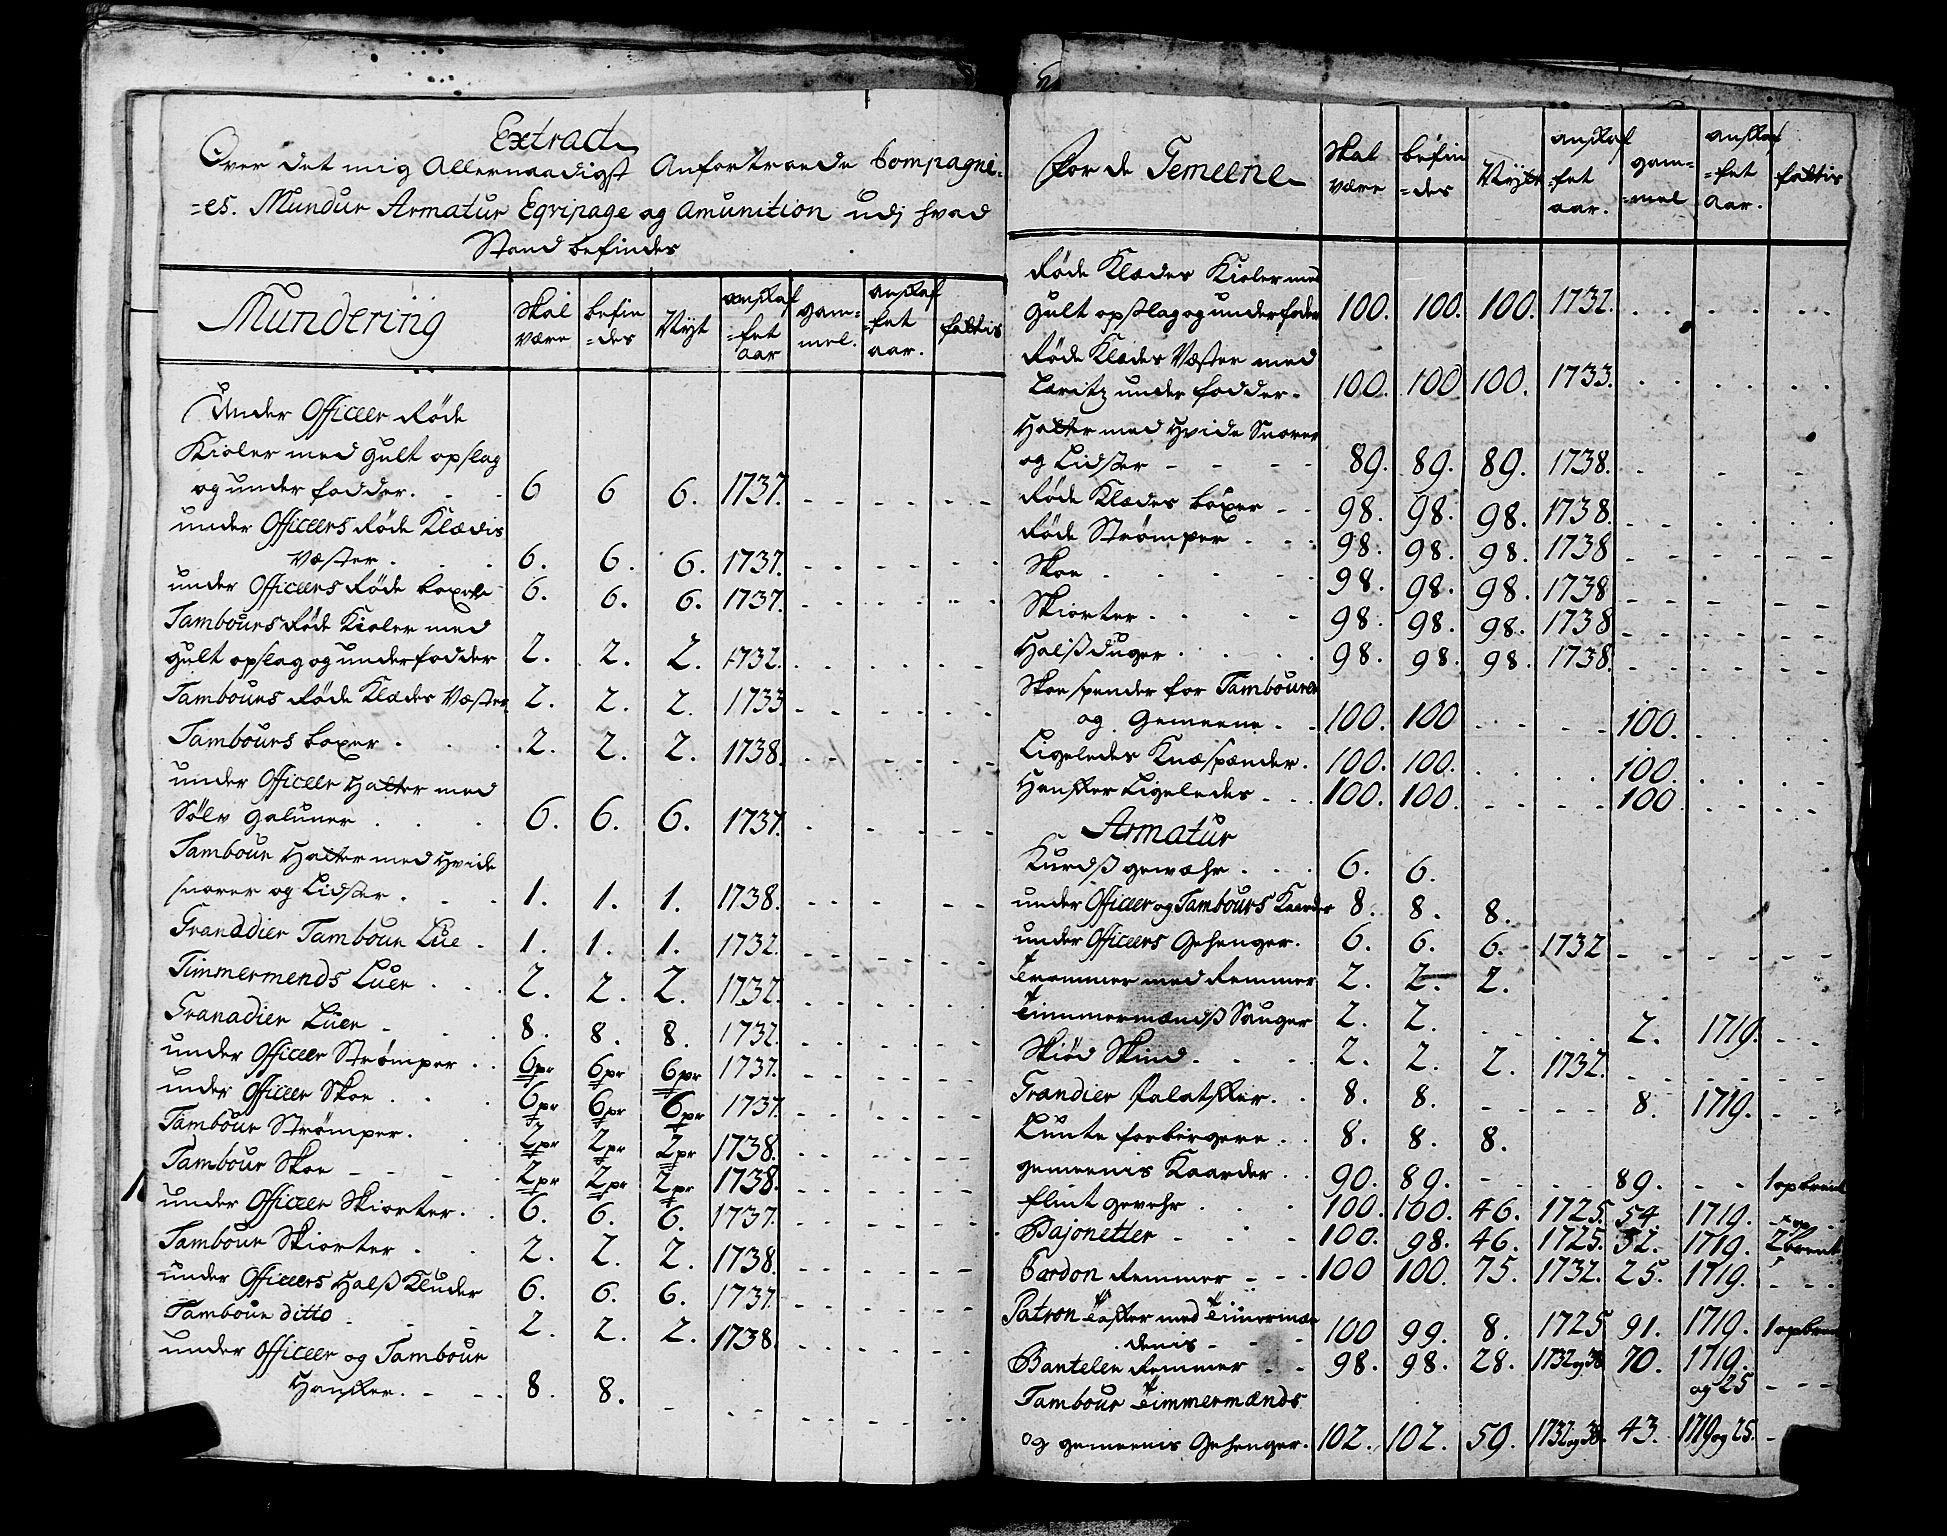 Extract
Over det mig Allernaadigst Anfortroede Compagni-
=es. Mundur Armatur Eqvipage og Amunition udj hvad
Stand befindes
Mundering | Skal være | befin=des | Nÿt | anskaf=fet aar | gam=mel. | anskaf=fet aar. | feltis
Under Officeer Røde
Kioler med Gult opslag
og under fodder. 6 6 6. 1737.
under Officeers Røde Klædis
Væster. 6. 6. 6. 1737.
under Officeers Røde boxer 6. 6. 6. 1737.
Tambours Røde Kioler med
gult opslag og underfodder 2. 2. 2. 1732.
Tambours Røde Klædes Væster 2. 2. 2. 1733
Tambours boxer. 2. 2. 2. 1738.
under Officeer Hatter med
Sølv galuner 6. 6. 6. 1737.
Tambour Hatter med Hvide
snorer og Lidster. 1. 1. 1. 1738.
Granadier Tambour Lue 1. 1. 1. 1732.
Timmermends Luer 2. 2. 2. 1732.
Granadier Luer 8. 8. 8. 1732.
under Officeer Strømper 6pr 6pr 6pr 1737.
under Officeer Skoe 6pr 6pr 6pr 1737.
Tambour Strømper. 2pr 2pr 2pr 1738.
Tambour Skoe 2pr 2pr 2pr 1738.
under Officeer Skiorter. 6. 6. 6. 1737.
Tambour Skiorter 2. 2. 2. 1738.
under Officeers Halß Kluder 6. 6. 6. 1737.
Tambour ditto. 2. 2. 2. 1738.
under Officeer og Tambour
Hansker. 8. 8.
For de Gemeene | Skal være | befin=des | Nÿt | anskaf=fet aar. | gam=mel | anskaf=fet Aar. | feltis
Røde Klædes Kioler med
Gult opslag og underfoder 100. 100. 100. 1732.
Røde Klædes Væster med
under fodder. 100. 100 100. 1733.
Hatter med Hvide Snorer
og Lidster 89. 89. 89. 1738.
Røde Klædes boxer 98. 98. 98. 1738.
Røde Strømper 98. 98. 98. 1738
Skoe 98. 98. 98. 1738
Skiorter. 98. 98. 98. 1738
Halßduger 98. 98. 98. 1738.
Skoespender for Tambourer
og Gemeene 100. 100 100.
Ligeledes Knæspænder. 100. 100. 100.
Hansker Ligeledes 100. 100. 100
Armatur
Kurdß gewæhr 6. 6.
under Officeer og Tambours Kaarder 8. 8. 8.
under Officeers Gehenger. 6. 6. 6. 1732
Trommer med Remmer 2. 2. 2.
Timmermændß Sauger 2. 2. 2. 1719.
Skiød Skind. 2. 2. 2. 1732.
Grandier Palasker. 8. 8. 8. 1719.
Lunte forbergere 8. 8. 8.
gemeenis Kaarder 90. 89. 89. 1 opbrent
flint gevehr 100. 100. 46. 1725. 54 1719.
Bajonetter 100. 98. 46. 1725. 52. 1719. 2 brent
Pardon Remmer 100 100. 75. 1732. 25. 1719.
Patron Tasker med Timermæn
denis 100 99. 8. 1725 91. 1719. 1 opbrent
Banteler Remmer 98. 98. 28. 1732 og 38 70. 1719. og 25
Tambour Timmermænds
og gemeenis Gehenger. 102. 102. 59. 1732 og 38. 43. 1719 og 25.